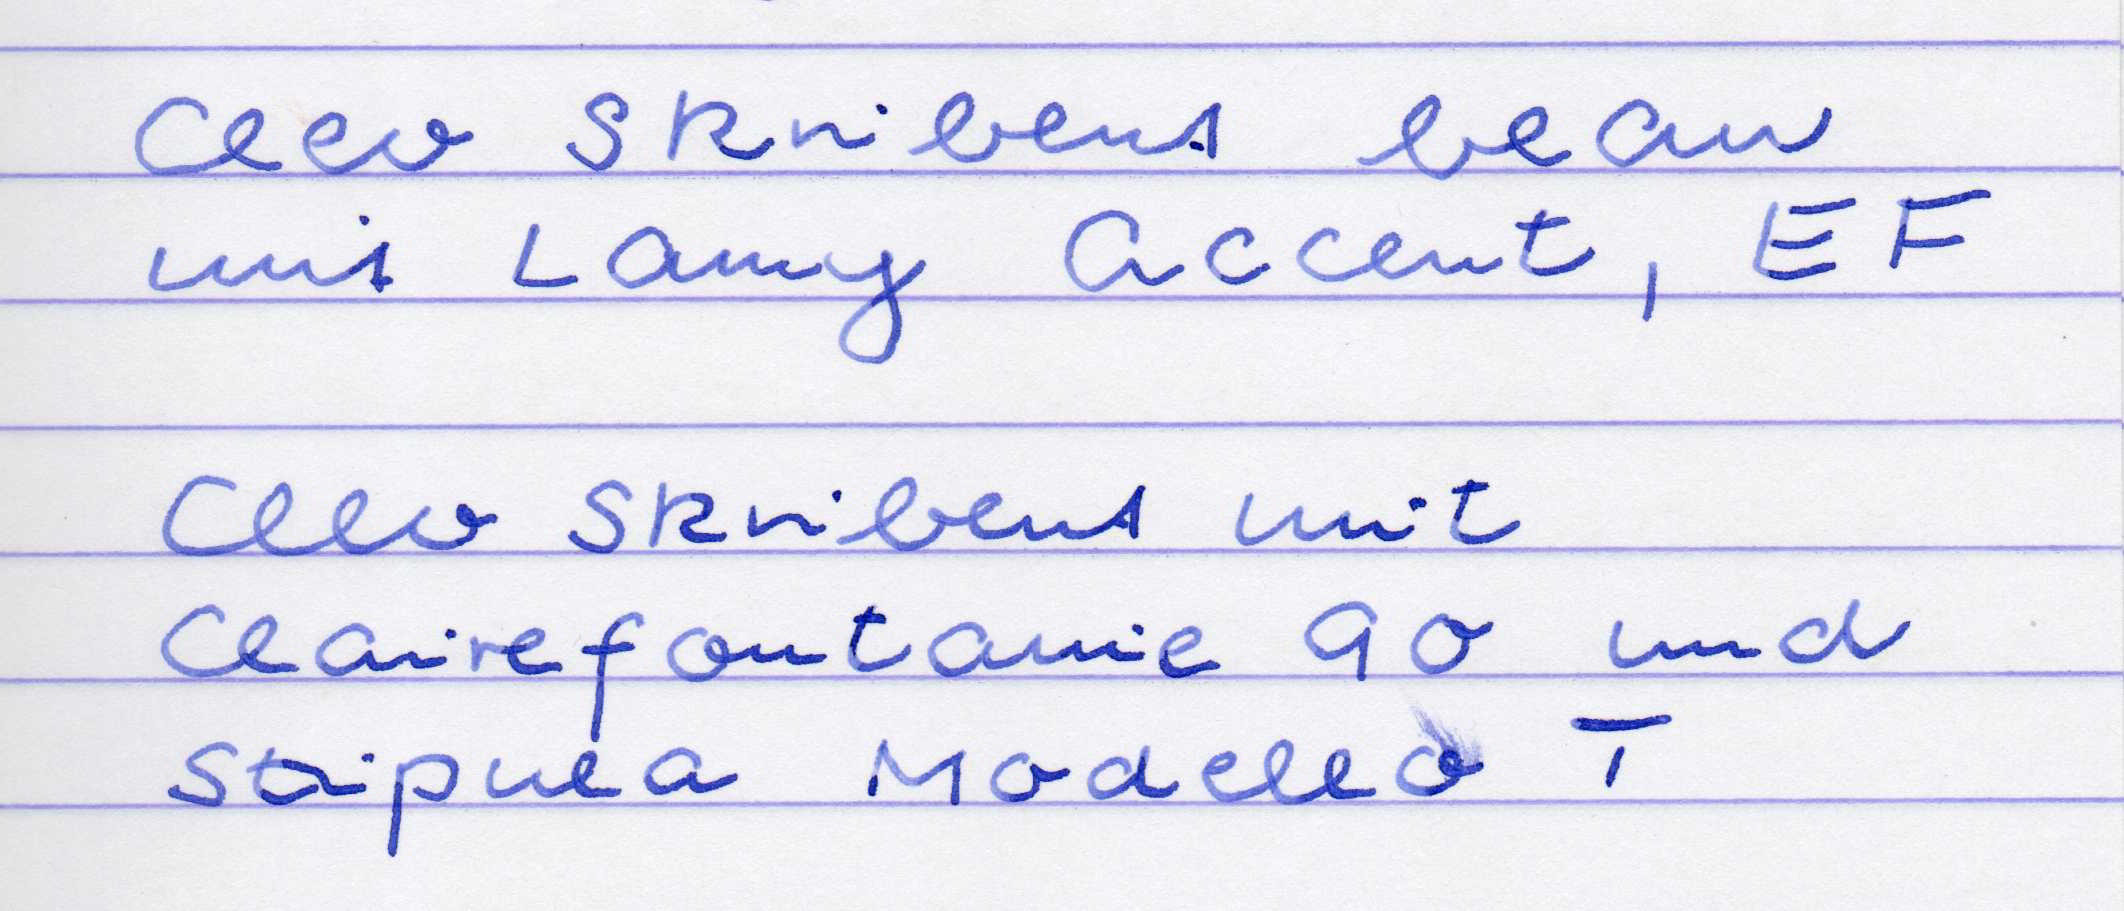 Cleo Skribent blau
mit Lamy Accent, EF
Cleo Skribent mit
Clairefontaine 90 und
Stipula Modello T